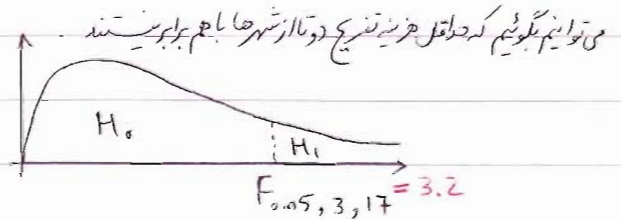 می توانیم بگوئیم که حداقل هزینه تفریح دو تا از شهرها با هم برابر نیستند .
H₀
H₁
F₀.₀₅, 3, 17 = 3.2